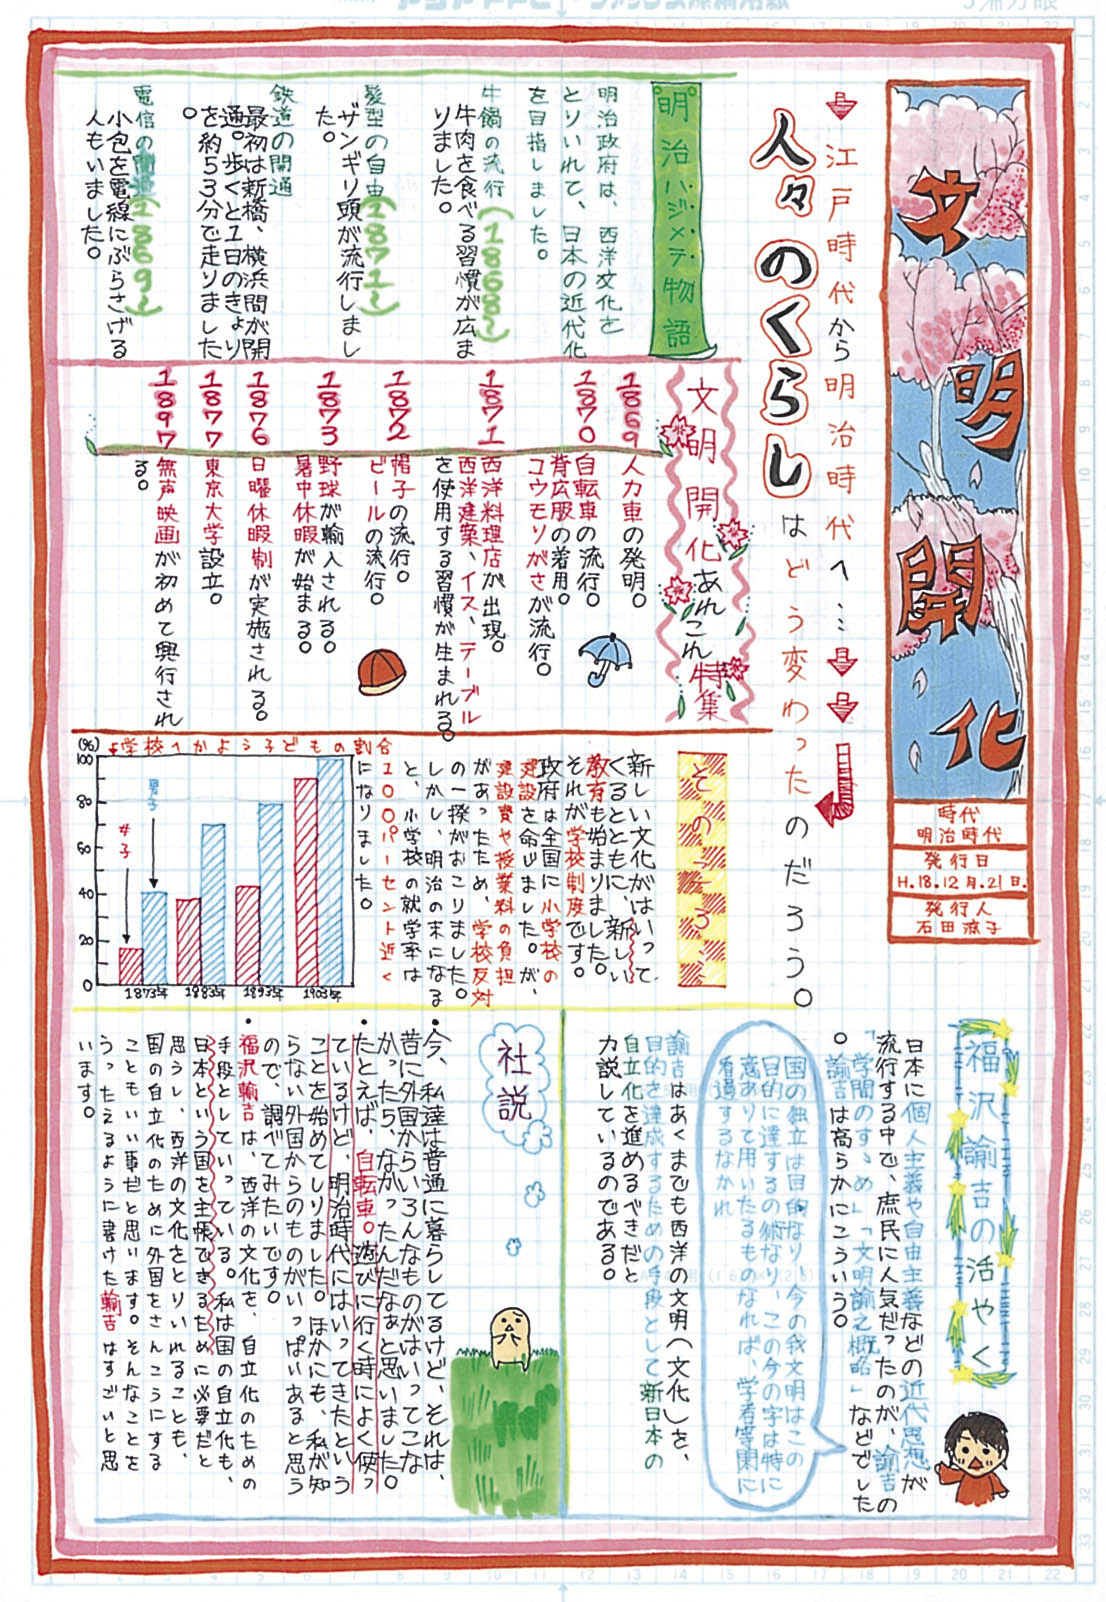 文明開化
時代
明治時代
発行日
H.18.12月.21日.
発行人
石田涼子
江戸時代から明治時代へ…
人々のくらしはどう変わったのだろう。
明治ハジメテ物語
明治政府は、西洋文化を
とりいれて、日本の近代化
を目指しました。
牛鍋の流行(1868~)
牛肉を食べる習慣が広ま
りました。
髪型の自由(1871~)
ザンギリ頭が流行しまし
た。
鉄道の開通
最初は新橋、横浜間が開
通。歩くと1日のきょり
を約53分で走りました
。
電信の開通(1869~)
小包を電線にぶらさげる
人もいました。
文明開化あれこれ特集
1869
人力車の発明。
1870
自転車の流行。
背広服の着用。
コウモリがさが流行。
1871
西洋料理店が出現。
西洋建築、イス、テーブル
を使用する習慣が生まれる。
1872
帽子の流行。
ビールの流行。
1873
野球が輸入される。
暑中休暇が始まる。
1876
日曜休暇制が実施される。
1877
東京大学設立。
1897
無声映画が初めて興行され
る。
そのころ
新しい文化がはいって
くるとともに、新しい
教育も始まりました。
それが学校制度です。
政府は全国に小学校の
建設を命じました。が、
建設費や授業料の負担
があったため、学校反対
の一揆がおこりました。
しかし、明治の末になる
と、小学校の就学率は
100パーセント近く
になりました。
学校へかよう子どもの割合
(%)
100
80
60
40
20
0
女子
男子
1873年
1883年
1893年
1903年
福沢諭吉の活やく
日本に個人主義や自由主義などの近代思想が
流行する中で、庶民に人気だったのが、諭吉の
「学問のすゝめ」「文明論之概略」などでした
。諭吉は高らかにこういう。
国の独立は目的なり、今の我文明はこの
目的に達するの術なり、この今の字は特に
意ありて用いたるものなれば、学者等閑に
看過するなかれ
諭吉はあくまでも西洋の文明(文化)を、
目的を達成するための手段として新日本の
自立化を進めるべきだと
力説しているのである。
社説
・今、私達は普通に暮らしてるけど、それは、
昔に外国からいろんなものがはいってこな
かったら、なかったんだなぁと思いました。
・たとえば、自転車。遊びに行く時によく使っ
ているけど、明治時代にはいってきたという
ことを始めてしりました。ほかにも、私が知
らない外国からのものがいっぱいあると思う
ので、調べてみたいです。
・福沢輸吉は、西洋の文化を、自立化のための
手段としていっている。私は国の自立化も、
日本という国を主帳できるために必要だと
思うし、西洋の文化をとりいれることも、
国の自立化のために外国をさんこうにする
こともいい事だと思います。そんなことを
うったえるように書けた輸吉はすごいと思
います。